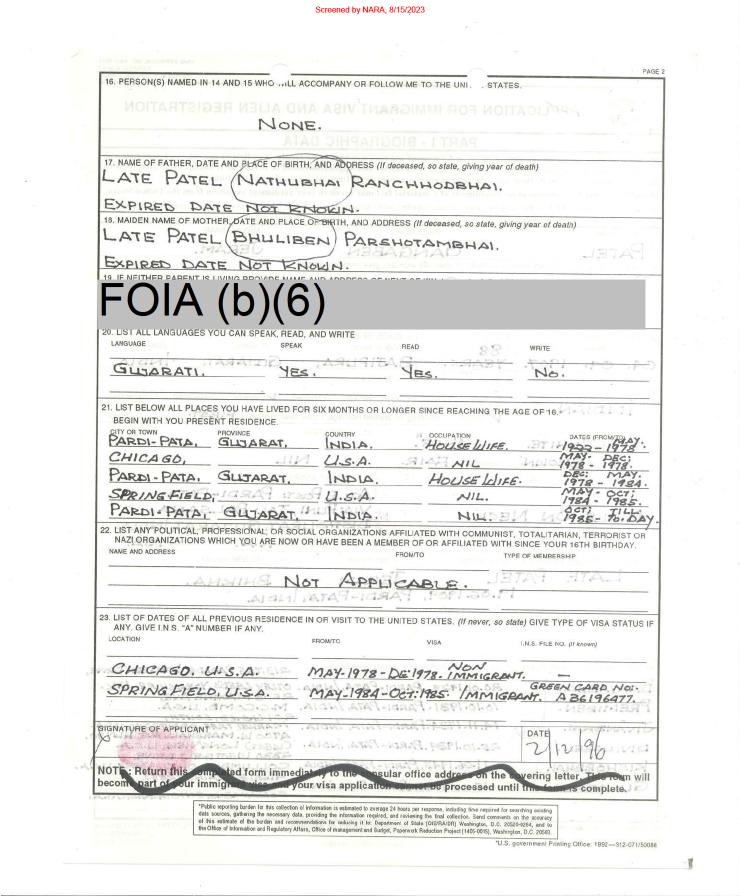 Screened by NARA, 8/15/2023
PAGE 2
16. PERSON(S) NAMED IN 14 AND 15 WHO WILL ACCOMPANY OR FOLLOW ME TO THE UNI STATES.
NONE.
17. NAME OF FATHER, DATE AND PLACE OF BIRTH, AND ADDRESS (If deceased, so state, giving year of death)
LATE PATEL NATHUBHAI RANCHHODBHAI.
EXPIRED DATE NOT KNOWN.
18. MAIDEN NAME OF MOTHER, DATE AND PLACE OF BIRTH, AND ADDRESS (If deceased, so state, giving year of death)
LATE PATEL BHULIBEN PARSHOTAMBHAI.
EXPIRED DATE NOT KNOWN.
19. IF NEITHER PARENT IS LIVING PROVIDE NAME AND ADDRESS OF NEXT OF KIN
FOIA (b)(6)
20. LIST ALL LANGUAGES YOU CAN SPEAK, READ, AND WRITE
LANGUAGE SPEAK READ WRITE
GUJARATI. YES. YES. NO.
21. LIST BELOW ALL PLACES YOU HAVE LIVED FOR SIX MONTHS OR LONGER SINCE REACHING THE AGE OF 16.
BEGIN WITH YOU PRESENT RESIDENCE.
CITY OR TOWN PROVINCE COUNTRY OCCUPATION DATES (FROM/TO)
PARDI-PATA, GUJARAT, INDIA. HOUSE WIFE. 1922 - MAY. 1978
CHICAGO, U.S.A. NIL MAY- 1978 - DEC; 1978.
PARDI-PATA, GUJARAT, INDIA. HOUSE WIFE. DEC; 1978 - MAY. 1984.
SPRINGFIELD, U.S.A. NIL. MAY- 1984 - OCT; 1985.
PARDI-PATA, GUJARAT, INDIA. NIL. OCT; 1985- TILL TO-DAY.
22. LIST ANY POLITICAL, PROFESSIONAL, OR SOCIAL ORGANIZATIONS AFFILIATED WITH COMMUNIST, TOTALITARIAN, TERRORIST OR
NAZI ORGANIZATIONS WHICH YOU ARE NOW OR HAVE BEEN A MEMBER OF OR AFFILIATED WITH SINCE YOUR 16TH BIRTHDAY.
NAME AND ADDRESS FROM/TO TYPE OF MEMBERSHIP
NOT APPLICABLE.
23. LIST OF DATES OF ALL PREVIOUS RESIDENCE IN OR VISIT TO THE UNITED STATES. (If never, so state) GIVE TYPE OF VISA STATUS IF
ANY. GIVE I.N.S. "A" NUMBER IF ANY.
LOCATION FROM/TO VISA I.N.S. FILE NO. (If known)
CHICAGO. U.S.A. MAY-1978-DE'1978. NON IMMIGRANT. —
SPRINGFIELD, U.S.A. MAY-1984-OCT:1985. IMMIGRANT. GREEN CARD NO:- A36196477.
SIGNATURE OF APPLICANT
DATE
2/12/96
NOTE: Return this completed form immediately to the consular office address on the covering letter. This form will
become part of your immigrant visa and your visa application cannot be processed until this form is complete.
*Public reporting burden for this collection of information is estimated to average 24 hours per response, including time required for searching existing
data sources, gathering the necessary data, providing the information required, and reviewing the final collection. Send comments on the accuracy
of this estimate of the burden and recommendations for reducing it to: Department of State (OIS/RA/DR) Washington, D.C. 20520-0264, and to
the Office of Information and Regulatory Affairs, Office of management and Budget, Paperwork Reduction Project (1405-0015), Washington, D.C. 20503.
*U.S. government Printing Office: 1992—312-071/50086